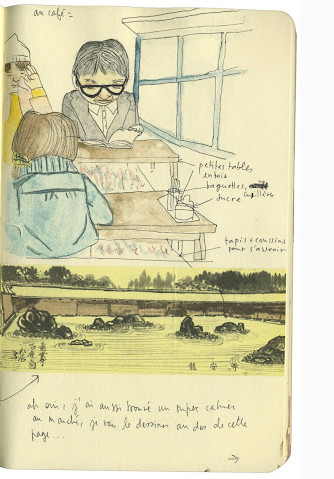 au café =
petites tables
en bois
baguettes, cuillère
sucre
tapis + coussins
pour s'asseoir
龍安寺
ah oui, j'ai aussi trouvé un super cahier
au marché, je vais le dessiner au dos de cette
page...